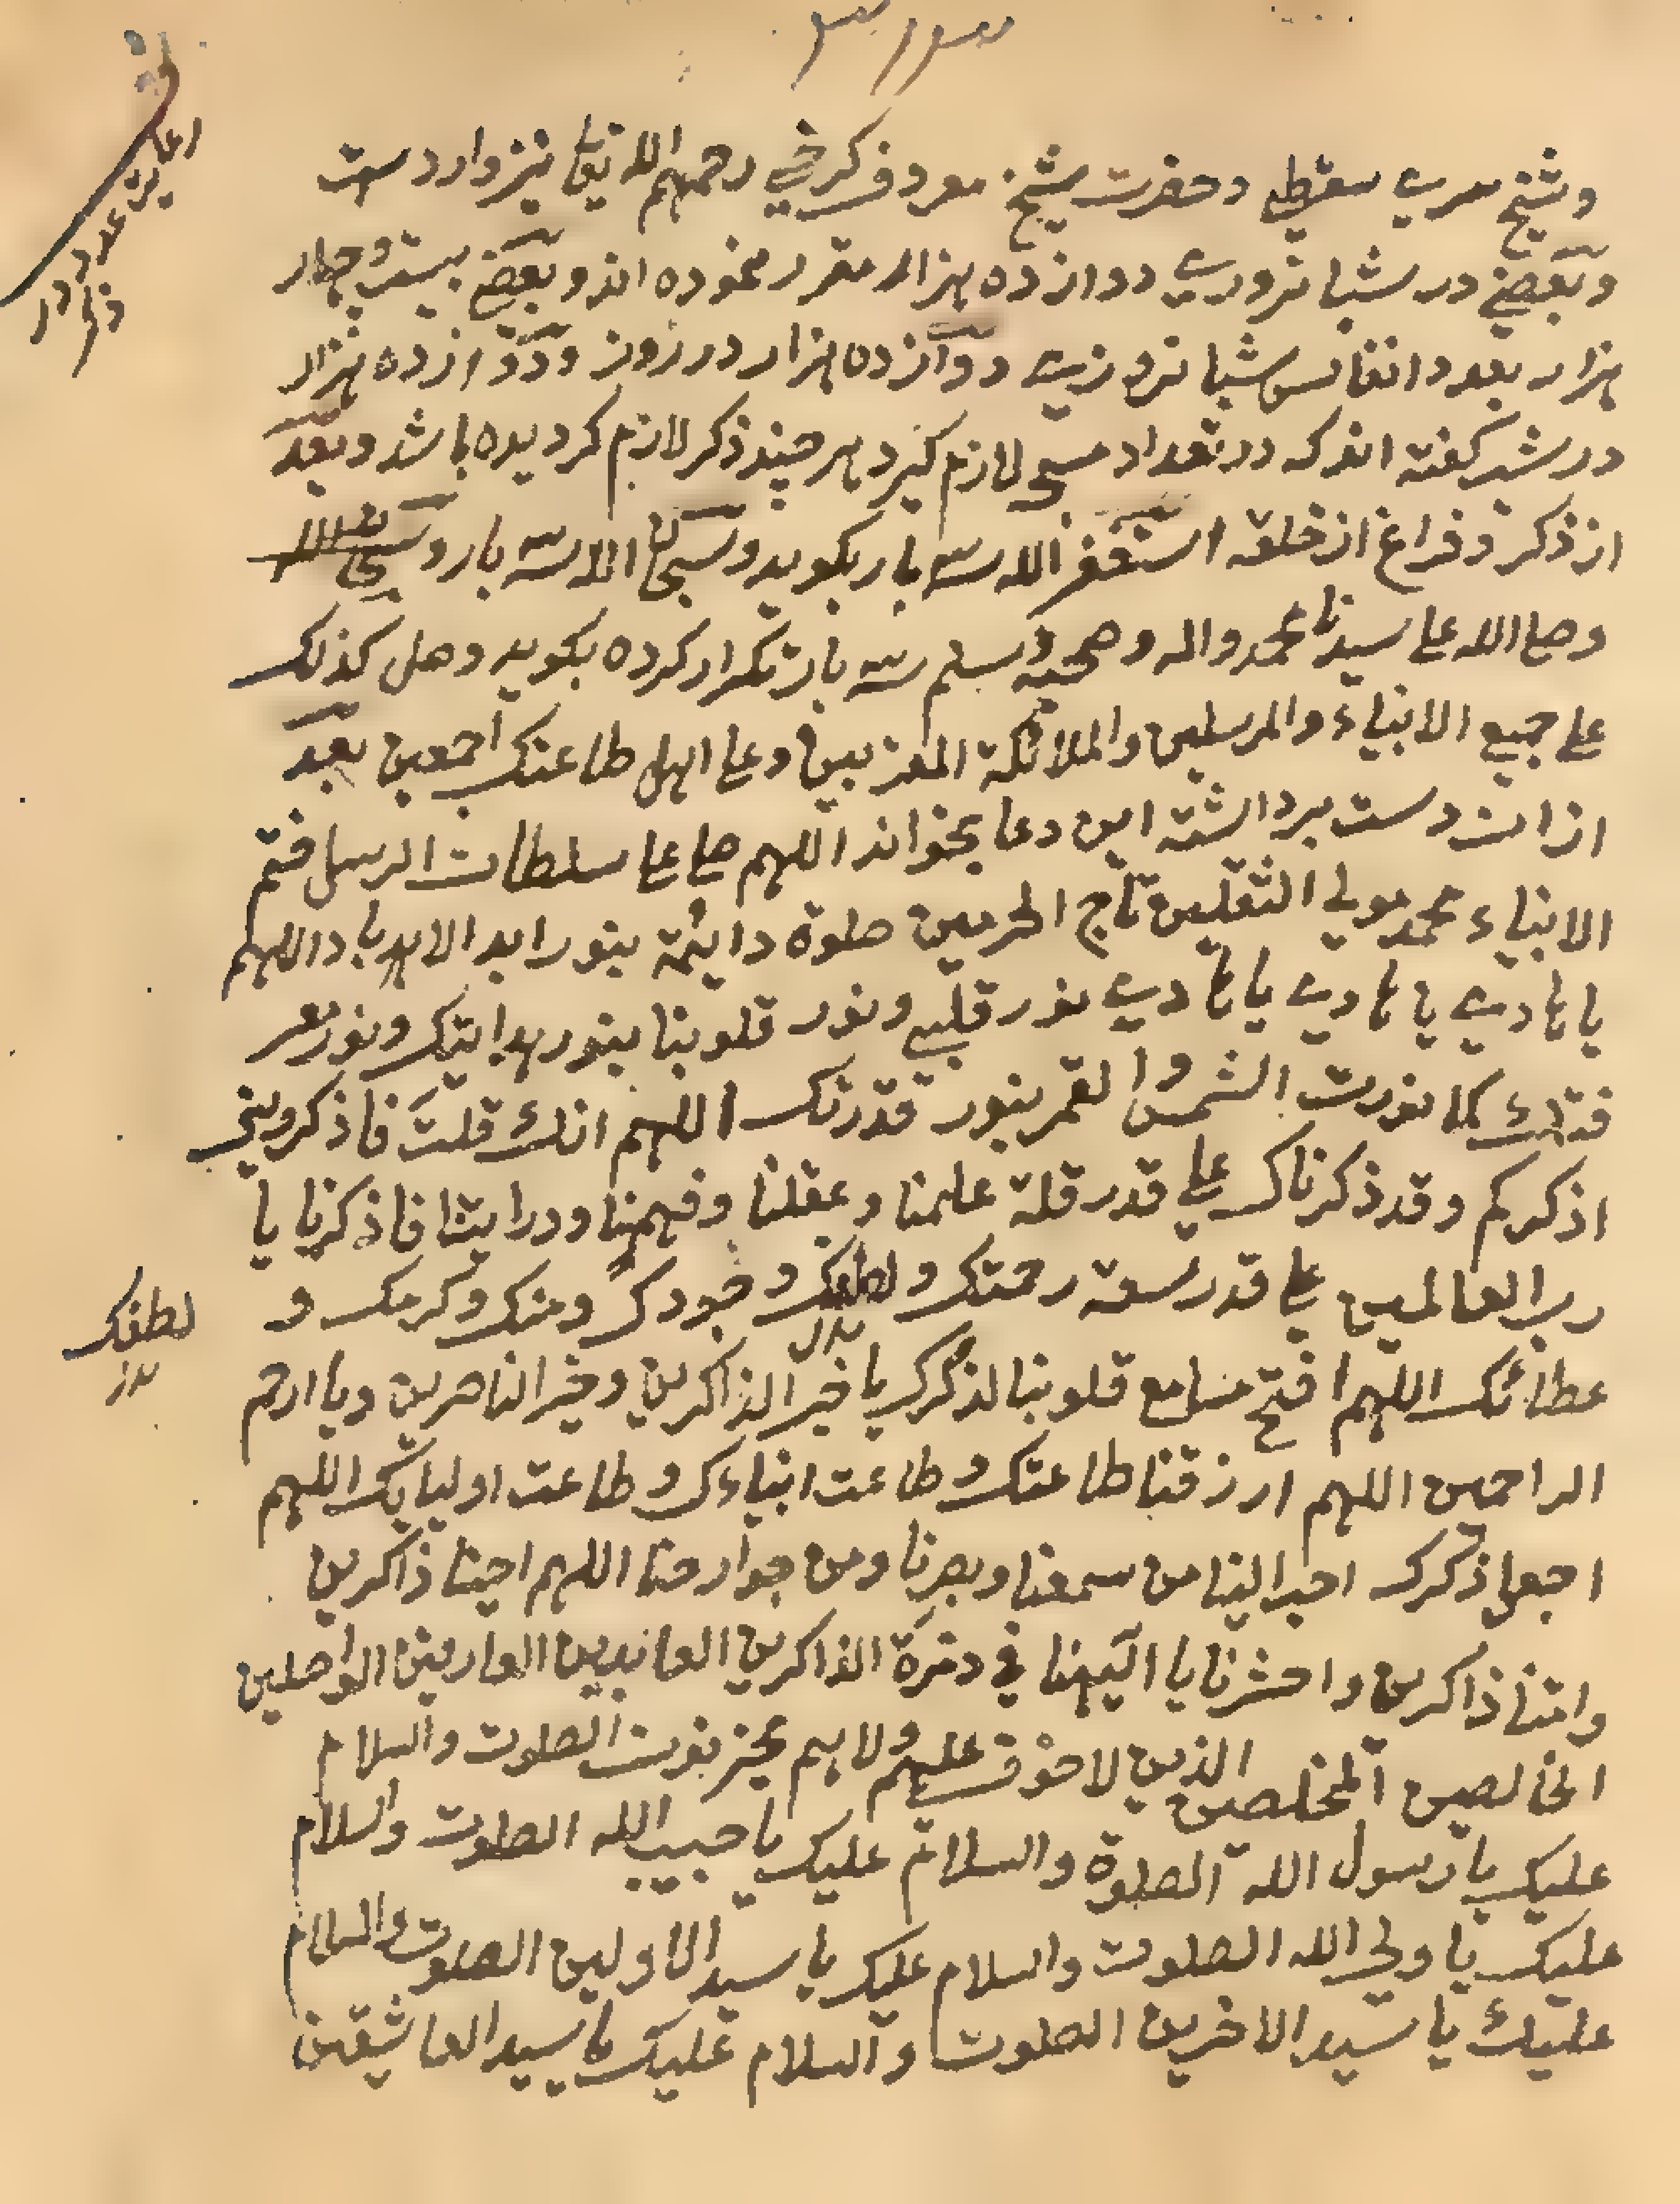 وشیخ سری سقطی و حضرت شیخ معروف کرخی رحمهم الله تعا نیز وارد ست
و بعضی در شبانروزی دوازده هزار مقرر نموده اند و بعضی بیست و چهار
هزار بعدد انفاس شبانروزیت دوازده هزار در روز و دوازده هزار
در شب گفته اند که در تعداد مسبحی لازم گیرد هر چند ذکر لازم گردیده باشد و بعد
از ذکر و فراغ از خلقه استغفر الله سه بار بگوید و سبحان الله سه بار و
وصلی الله علی سیدنا محمد واله وصحبه وسلم سه بار تکرار کرده بگوید وصل کذلک
علی جمیع الانبیاء والمرسلین والملائکة المقربین وعلی اهل طاعتک اجمعین بعد
ازان دست برداشته این دعا بخواند اللهم صل علی سلطان الرسل ختم
الانبیاء محمد مولی الثقلین تاج الحرمین صلوة دائمة بنور ابد الاباد اللهم
یا هادی یا هادی یا هادی نور قلبی ونور قلوبنا بنور هدایتک ونور معر
فتک کما نورت الشمس والقمر بنور قدرتک اللهم انک قلت فاذکرونی
اذکرکم وقد ذکرناک علی قدر قلة علمنا وعقلنا وفهمنا ودرایتنا فاذکرنا یا
رب العالمین علی قدر سعة رحمتک ولطفک وجودک ومنک وکرمک و
لطفک
عطائک اللهم افتح مسامع قلوبنا لذکرک یا خیر الذاکرین وخیر الناصرین ویا ارحم
الراحمین اللهم ارزقنا طاعتک وطاعت انبیاءک وطاعت اولیایک اللهم
اجعل ذکرک احب الینا من سمعنا وبصرنا ومن جوارحنا اللهم احینا ذاکرین
وامتنا ذاکرین واحشرنا یا الهنا فی زمرة الذاکرین العابدین العارفین الواصلین
الخالصین المخلصین الذین لا خوف علیهم ولا هم یحزنون الصلوت والسلام
علیک یا رسول الله الصلوة والسلام علیک یا حبیب الله الصلوت والسلام
علیک یا ولی الله الصلوت والسلام علیک یا سید الاولین الصلوت والسلام
علیک یا سید الاخرین الصلوت والسلام علیک یا سید العاشقین